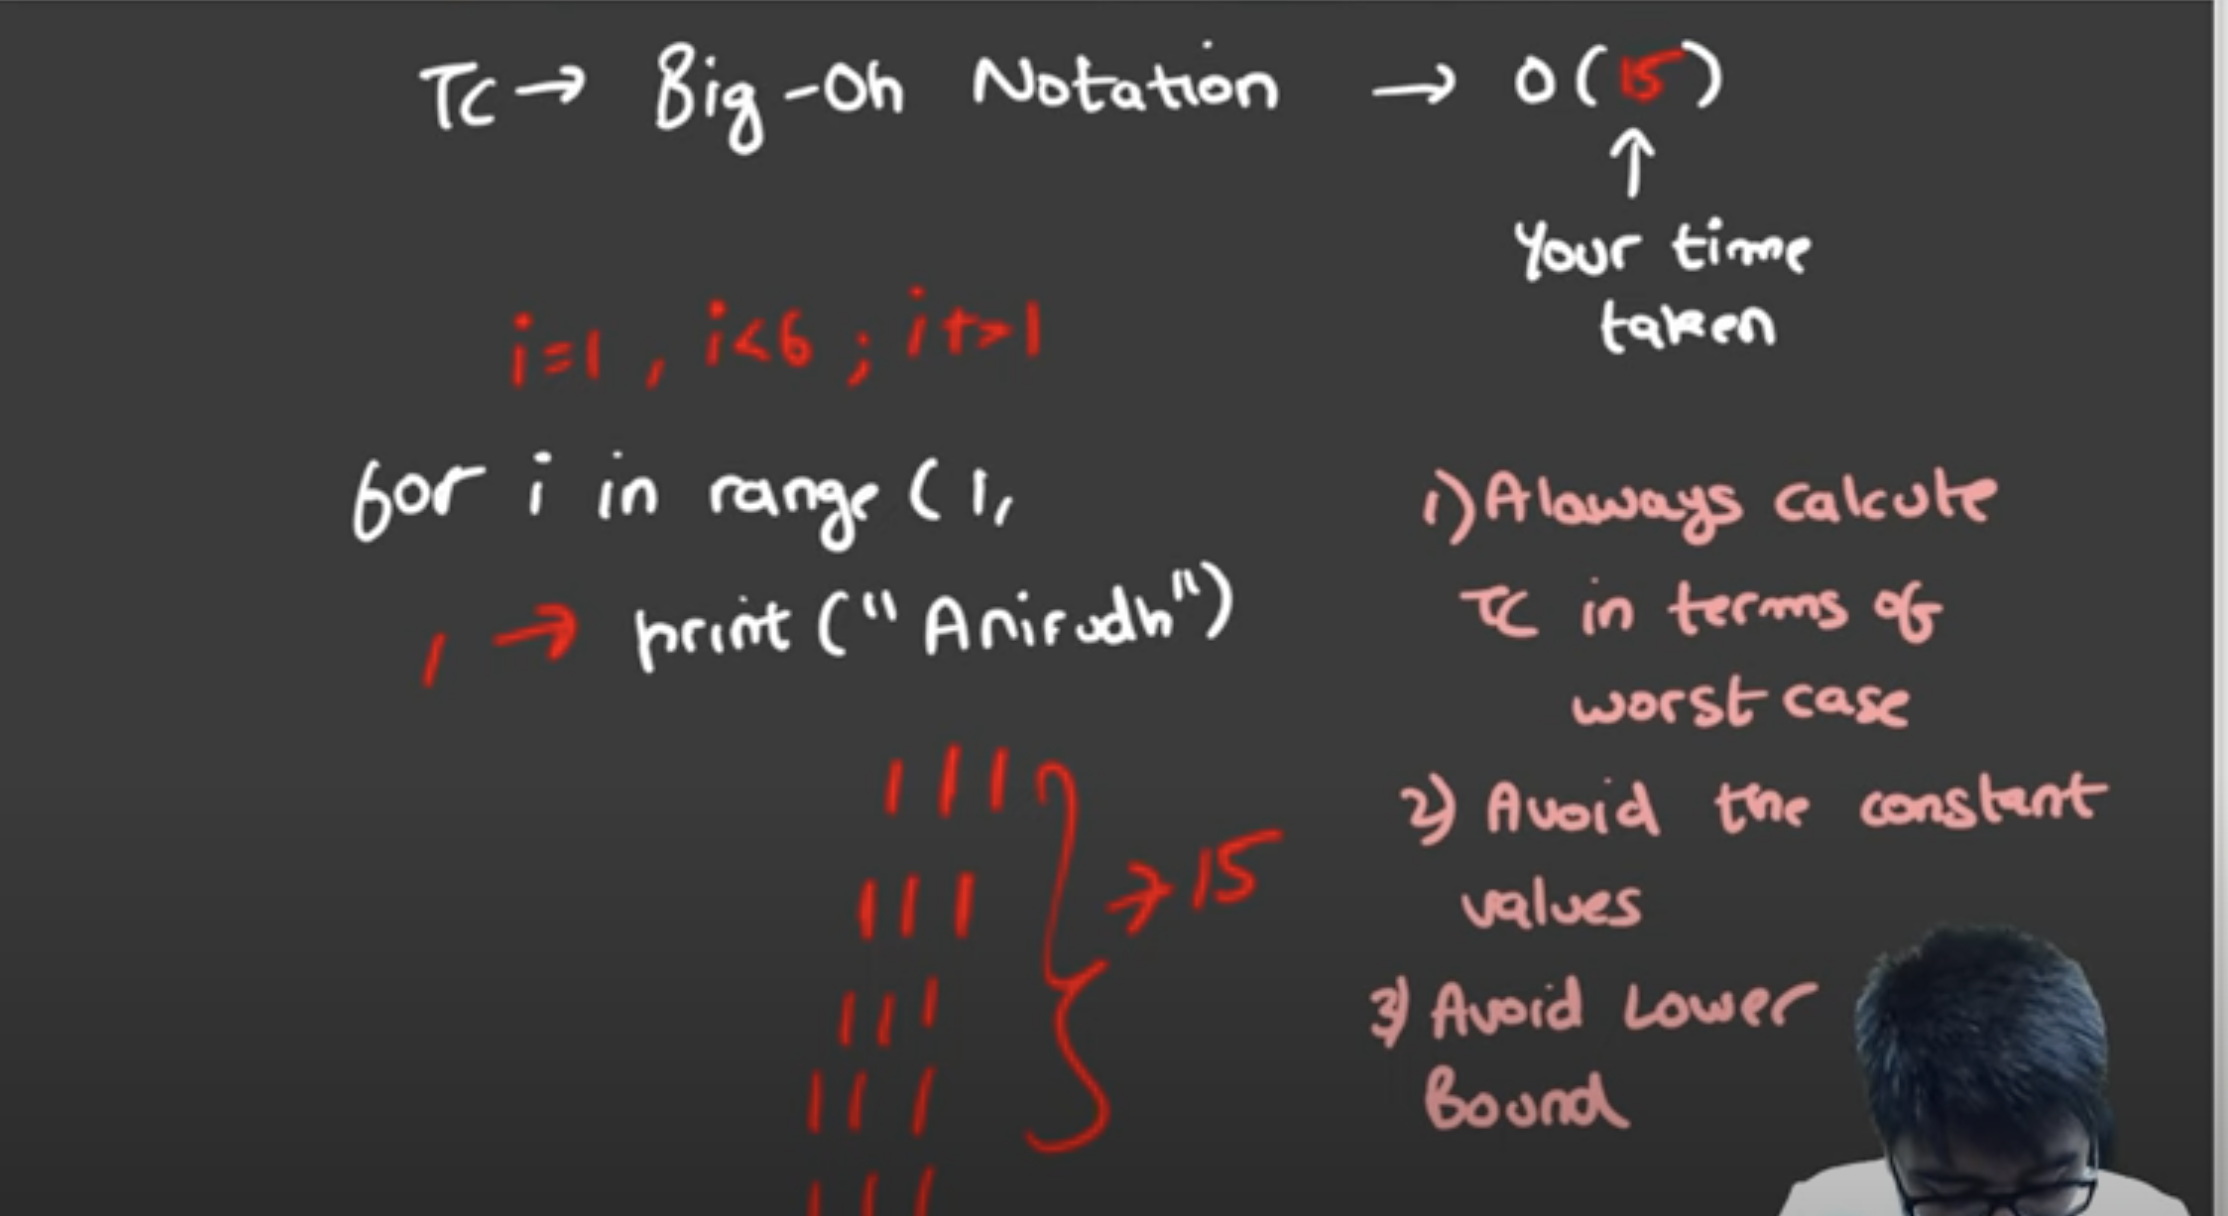 TC → Big-Oh Notation → O(15)
↑
Your time
taken
i=1, i<6; i+>1
for i in range (1,
1 → print ("Anirudh")
111
111
→ 15
111
111
111
1) Alaways calcute
TC in terms of
worst case
2) Avoid the constant
values
3) Avoid Lower
Bound